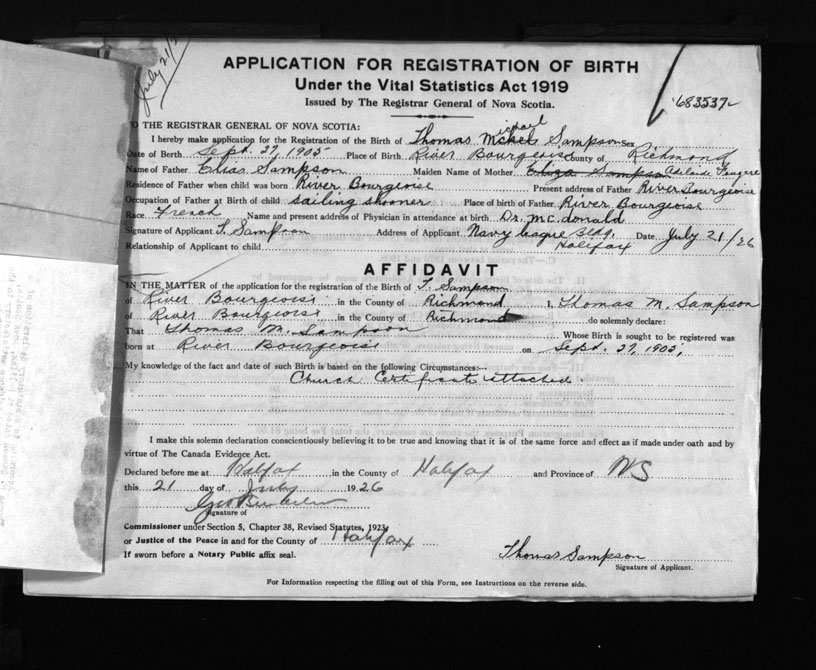 July 21/2
APPLICATION FOR REGISTRATION OF BIRTH
Under the Vital Statistics Act 1919
Issued by The Registrar General of Nova Scotia.
683537
TO THE REGISTRAR GENERAL OF NOVA SCOTIA:
I hereby make application for the Registration of the Birth of Thomas Michael Sampson Sex
Date of Birth Sept. 27, 1905 Place of Birth River Bourgeoise County of Richmond
Name of Father Elias Sampson Maiden Name of Mother Eliza Sampson Adelaide
Residence of Father when child was born River Bourgeoise Present address of Father River Bourgeoise
Occupation of Father at Birth of child sailing shooner Place of birth of Father River Bourgeoise
Race French Name and present address of Physician in attendance at birth Dr. McDonald
Signature of Applicant T. Sampson Address of Applicant Navy League Bldg. Halifax Date July 21/26
Relationship of Applicant to child
AFFIDAVIT
IN THE MATTER of the application for the registration of the Birth of T. Sampson
of River Bourgeoise in the County of Richmond I, Thomas M. Sampson
of River Bourgeoise in the County of Richmond do solemnly declare:
That Thomas M. Sampson Whose Birth is sought to be registered was
born at River Bourgeoise on Sept. 27, 1905,
My knowledge of the fact and date of such Birth is based on the following Circumstances:—
Church Certificate attached
I make this solemn declaration conscientiously believing it to be true and knowing that it is of the same force and effect as if made under oath and by
virtue of The Canada Evidence Act.
Declared before me at Halifax in the County of Halifax and Province of NS
this 21 day of July 1926
Signature of
Commissioner under Section 5, Chapter 38, Revised Statutes, 1923,
or Justice of the Peace in and for the County of Halifax
If sworn before a Notary Public affix seal.
Thomas Sampson
Signature of Applicant.
For Information respecting the filling out of this Form, see Instructions on the reverse side.